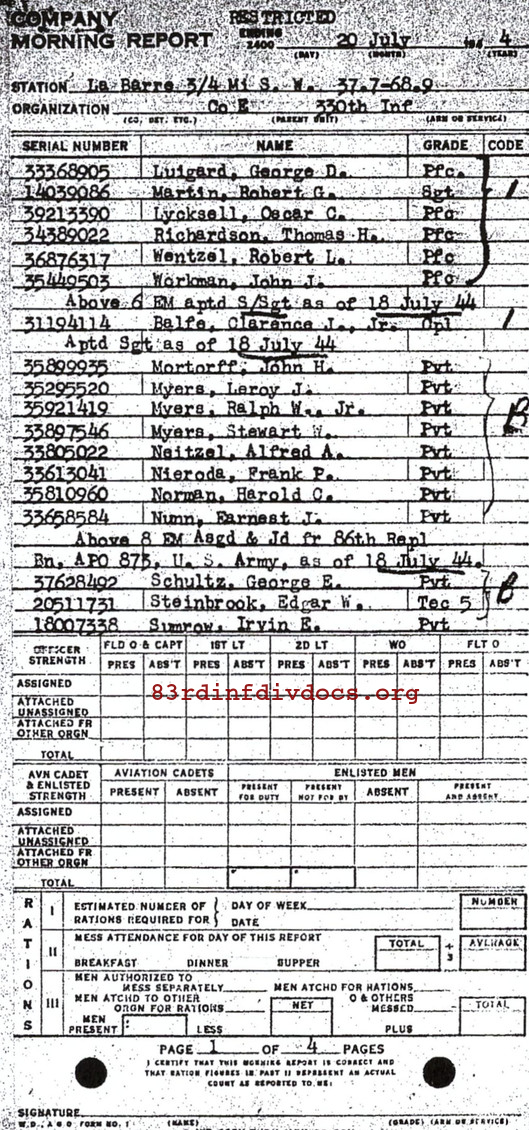 COMPANY RESTRICTED
MORNING REPORT ENDING 2400 20 July 194 4
(DAY) (MONTH) (YEAR)
STATION La Barre 3/4 Mi S. W. 37.7-68.9
ORGANIZATION Co E 330th Inf
(CO, DET, ETC.) (PARENT UNIT) (ARM OR SERVICE)
SERIAL NUMBER NAME GRADE CODE
33368905 Luigard, George D. Pfc.
14039086 Martin, Robert G. Sgt 1
39213390 Lycksell, Oscar C. Pfc
34389022 Richardson, Thomas H. Pfc
36876317 Wentzel, Robert L. Pfc
35449503 Workman, John J. Pfc
Above 6 EM aptd S/Sgt as of 18 July 44
31194114 Balfe, Clarence J., Jr. Cpl 1
Aptd Sgt as of 18 July 44
35899935 Mortorff, John H. Pvt
35295520 Myers, Leroy J. Pvt
35921419 Myers, Ralph W., Jr. Pvt B
33897546 Myers, Stewart W. Pvt
33805022 Neitzel, Alfred A. Pvt
33613041 Nieroda, Frank P. Pvt
35810960 Norman, Harold C. Pvt
33658584 Nunn, Earnest J. Pvt
Above 8 EM Asgd & Jd fr 86th Repl
Bn, APO 873, U. S. Army, as of 18 July 44.
37628492 Schultz, George E. Pvt
20511731 Steinbrook, Edgar W. Tec 5 B
18007338 Sumrow, Irvin E. Pvt
OFFICER STRENGTH FLD O & CAPT 1ST LT 2D LT WO FLT O
PRES ABS'T PRES ABS'T PRES ABS'T PRES ABS'T PRES ABS'T
ASSIGNED
83rdinfdivdocs.org
ATTACHED UNASSIGNED
ATTACHED FR OTHER ORGN
TOTAL
AVN CADET & ENLISTED STRENGTH AVIATION CADETS ENLISTED MEN
PRESENT ABSENT PRESENT FOR DUTY PRESENT NOT FOR DY ABSENT PRESENT AND ABSENT
ASSIGNED
ATTACHED UNASSIGNED
ATTACHED FR OTHER ORGN
TOTAL
RATIONS
I ESTIMATED NUMBER OF RATIONS REQUIRED FOR DAY OF WEEK DATE NUMBER
II MESS ATTENDANCE FOR DAY OF THIS REPORT TOTAL ÷ 3 AVERAGE
BREAKFAST DINNER SUPPER
III MEN AUTHORIZED TO MESS SEPARATELY MEN ATCHD FOR RATIONS
MEN ATCHD TO OTHER ORGN FOR RATIONS NET O & OTHERS MESSED TOTAL
MEN PRESENT LESS PLUS
PAGE 1 OF 4 PAGES
I CERTIFY THAT THIS MORNING REPORT IS CORRECT AND
THAT RATION FIGURES IN PART II REPRESENT AN ACTUAL
COUNT AS REPORTED TO ME:
SIGNATURE
W.D., A.G.O. FORM NO. 1 (NAME) (GRADE) (ARM OR SERVICE)